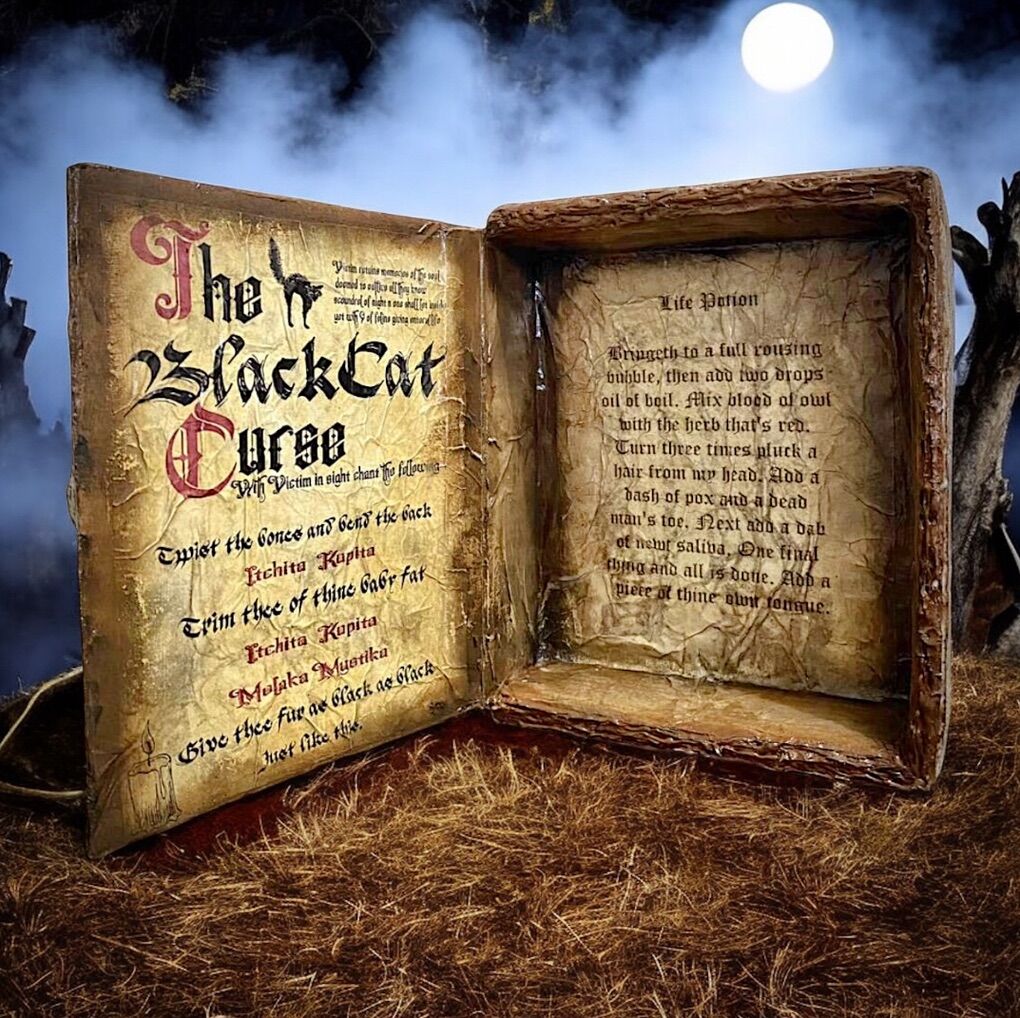 The
Victim retains memories of the soul
doomed to suffice all they know
scoundrel of night n one shall for
yet with 9 of feline giving immoral life
BlackCat
Curse
With Victim in sight chant the following
Twist the bones and bend the back
Itchita Kopita
Trim thee of thine baby fat
Itchita Kopita
Melaka Mystika
Give thee fur as black as black
Just like this.
Life Potion
Bringeth to a full rouzing
bubble, then add two drops
oil of boil. Mix blood of owl
with the herb that's red.
Turn three times pluck a
hair from my head. Add a
dash of pox and a dead
man's toe. Next add a dab
of newt saliva, One final
thing and all is done. Add a
piece of thine own tongue.